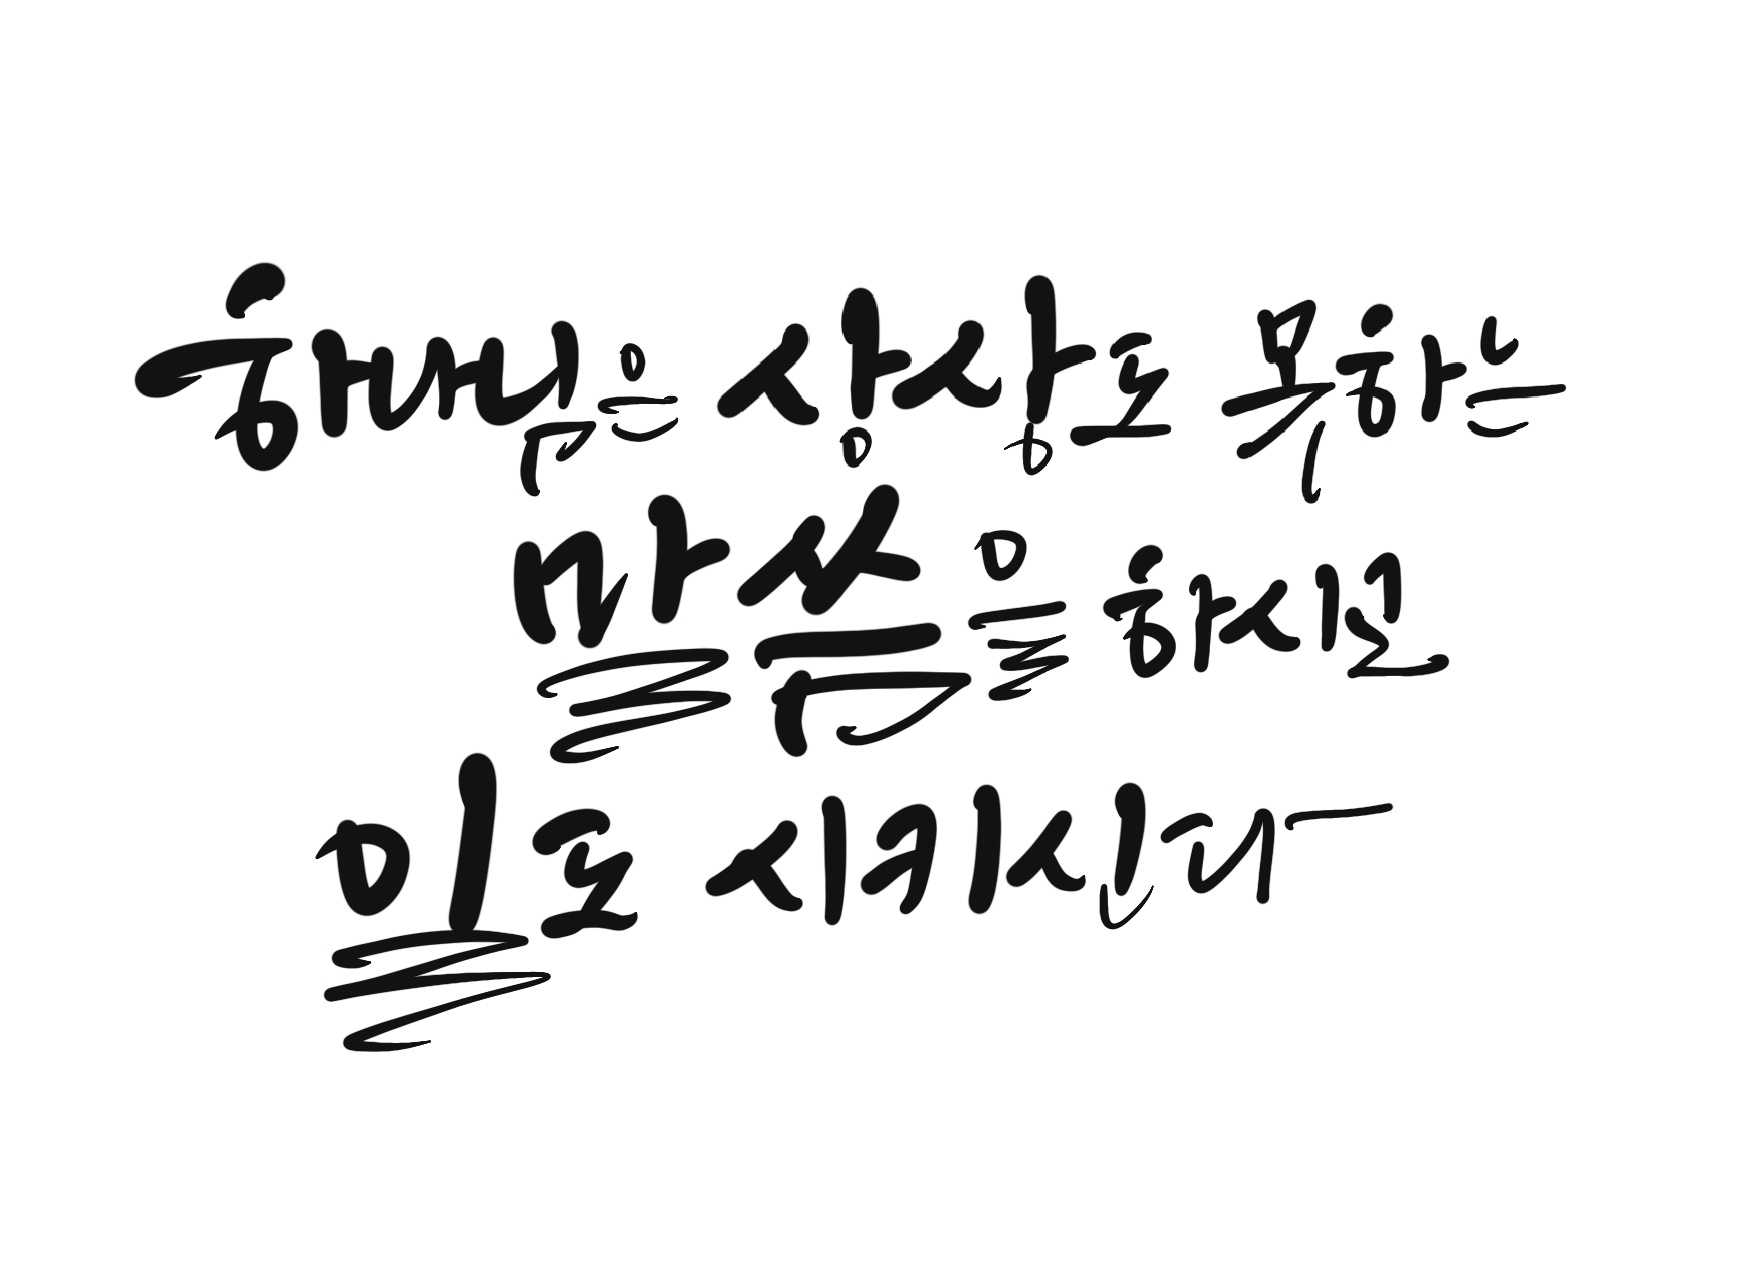 하나님은 상상도 못하는
말씀을 하시고
일도 시키신다